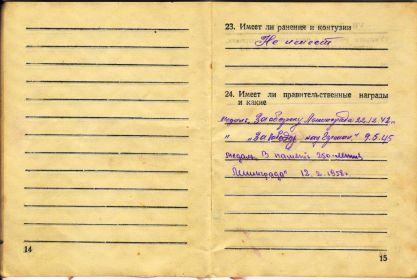 23. Имеет ли ранения и контузии
Не имеет
24. Имеет ли правительственные награды
и какие
медаль „За оборону Ленинграда" 22.12.42г.
" „За победу над Германией" 9.5.45
медаль „В память 250-летия
Ленинграда" 12.2.1958г.
14
15